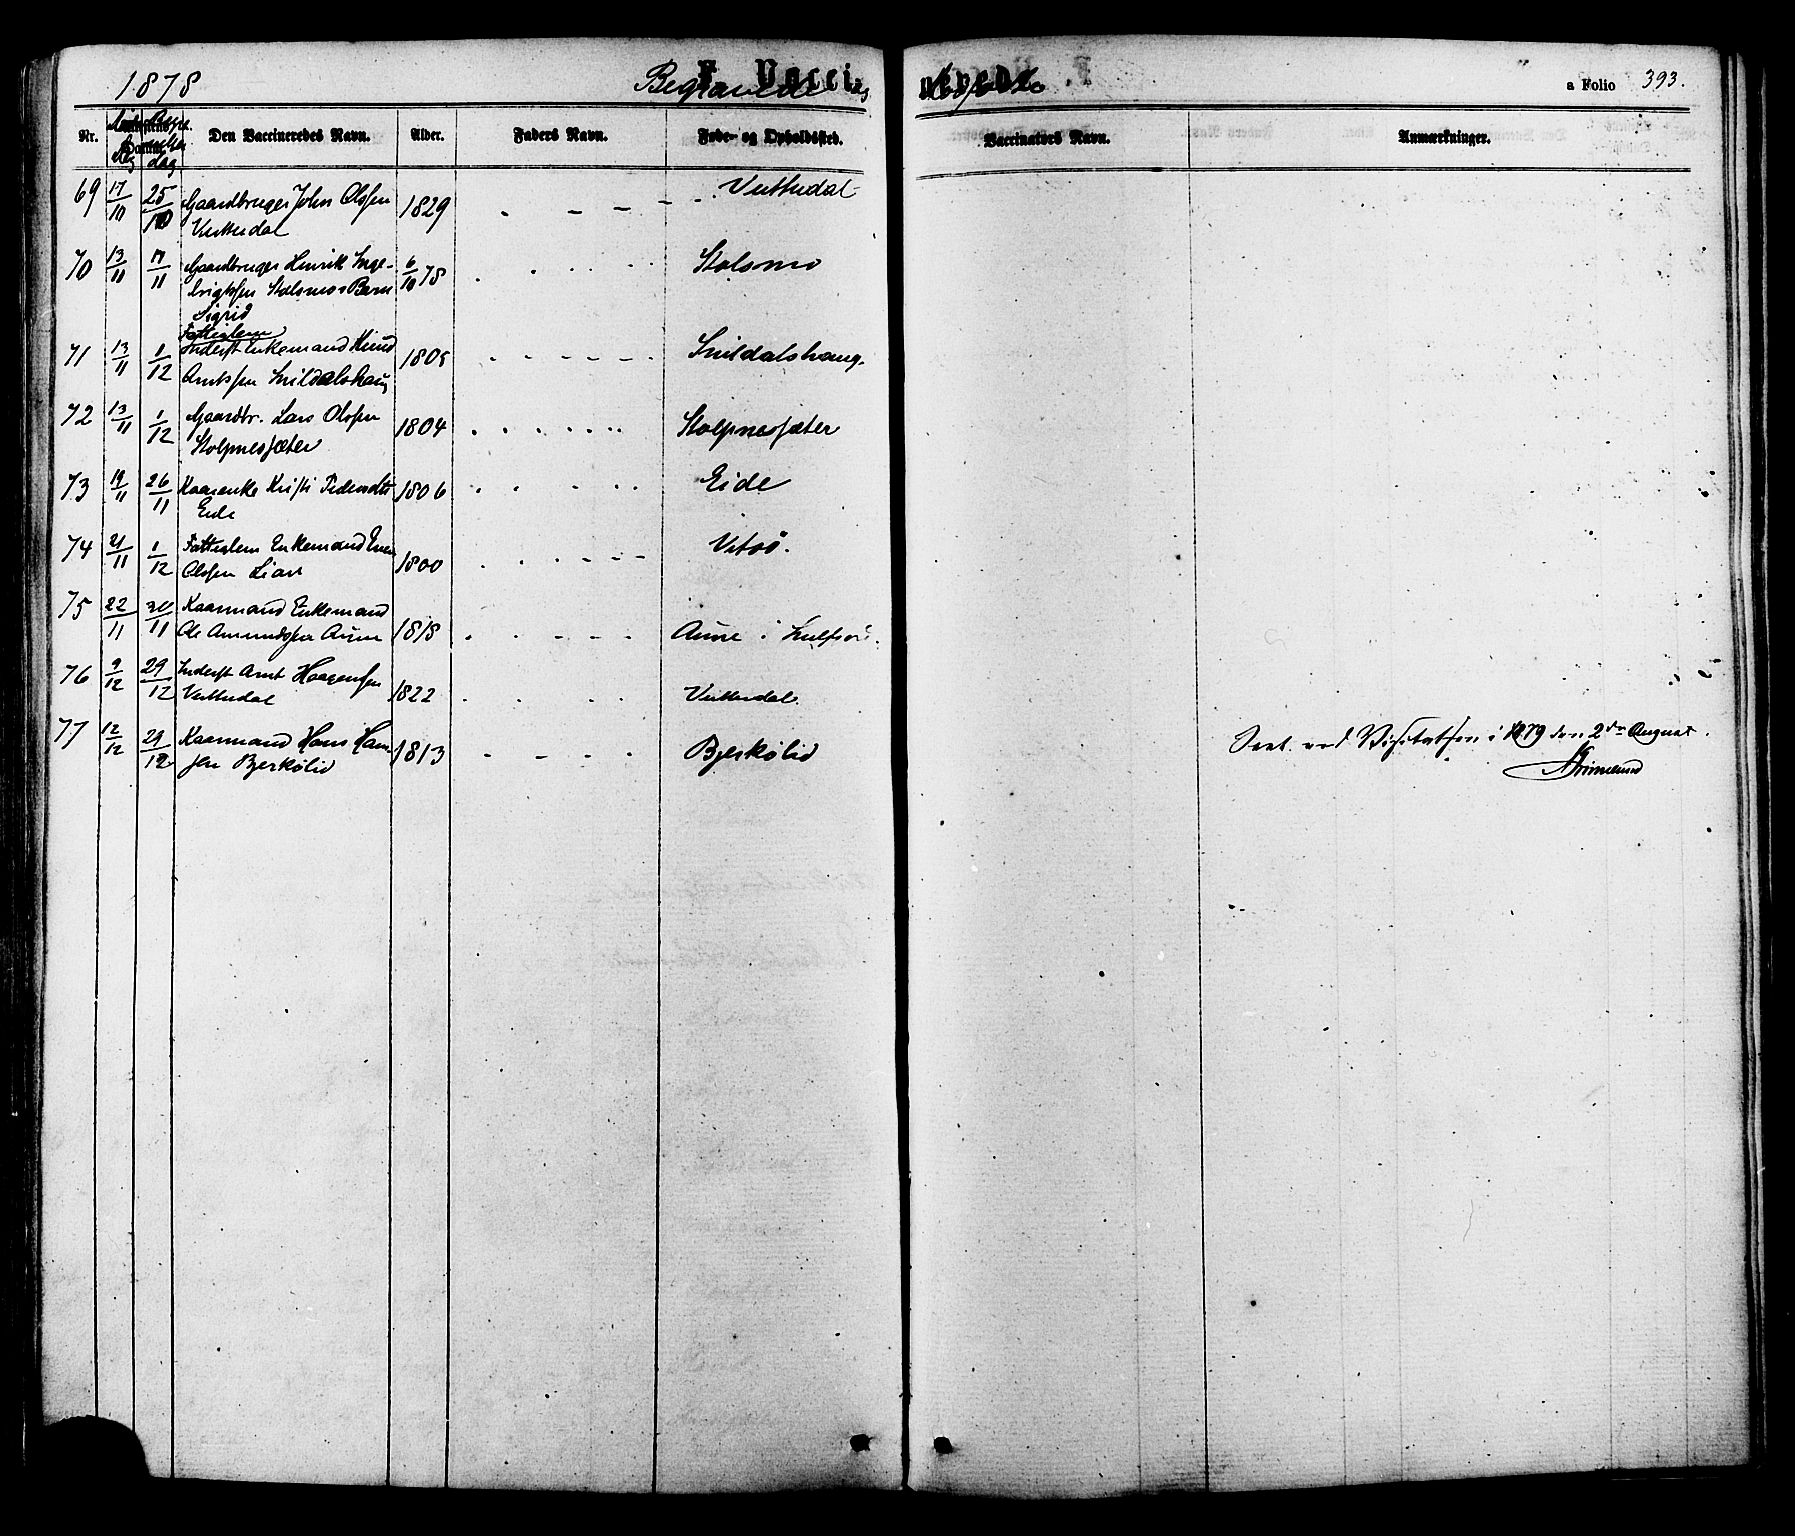 1878 Begravede F. Vacci nerede. a Folio 393.
Nr. Den Vaccineredes Navn. Alder. Faders Navn. Føde- og Opholdssted. Vaccinators Navn. Anmærkninger.
69 17/10 25/10 Gaardbruger John Olssen 1829 Vuttudal
Vuttudal
70 13/11 17/11 Gaardbruger Henrik Inge- 6/10 78 Stolsmo
brigtssen Stolsmos Barn
Sigrid
Fattiglem
71 13/11 1/12 Inderst Enkemand Knud 1805 Snildalshaug.
Arntssen Snildalshaug
72 13/11 1/12 Gaardbr. Lars Olssen 1804 Stolpnessæter
Stolpnessæter
73 19/11 26/11 Kaarenke Kristi 1806 Eide
Eide
74 21/11 1/12 Fattiglem Enkemand Even 1800 Vitsø.
Olssen Lian
75 22/11 30/11 Kaarmand Enkemand
Ole Amundssen Aune 1818 Aune i
76 9/12 29/12 Inderst Arnt Haagenssen
Vuttudal 1822 Vuttudal.
77 12/12 29/12 Kaarmand Hans Han- 1813 Bjerkølid
sen Bjerkølid
Seet ved Visitatsen i 1879 den 2den August.